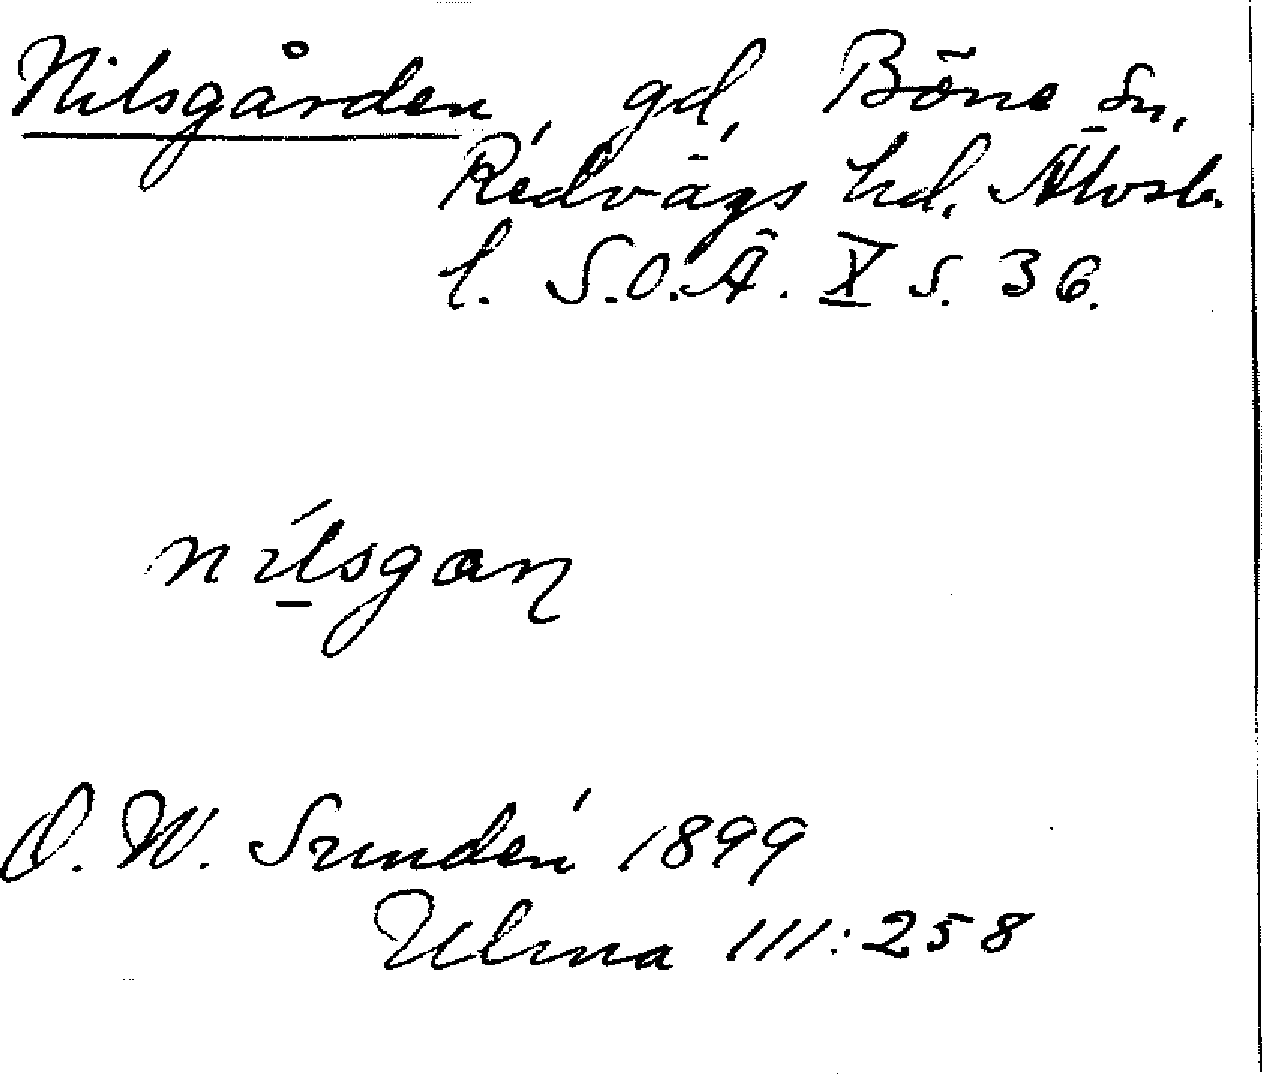 Nilsgården, gd, Böne sn,
Redvägs hd. Älvsb.
l. S.O.Ä. X s. 36.
nílsgaɳ
O. W. Sundén 1899
Ulma 111:258